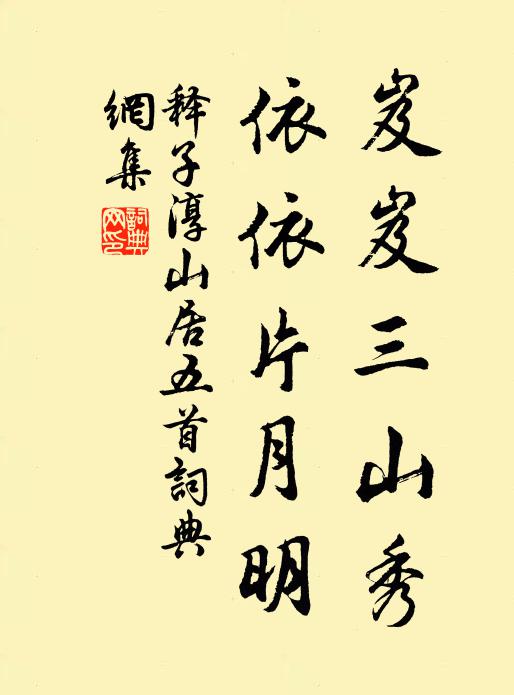 岌岌三山秀
依依片月明
释子淳山居五首詞典
網集
詞典
网印